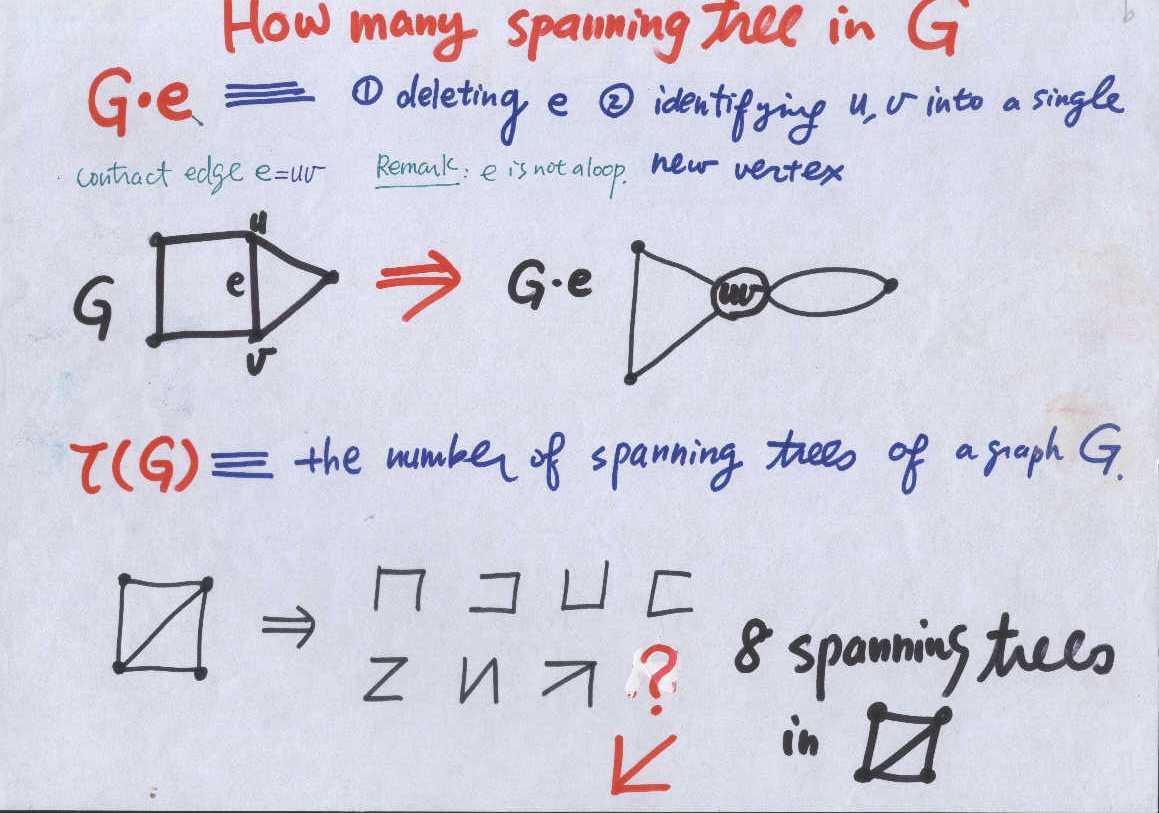 How many spanning tree in G
6
G·e ≡ ① deleting e ② identifying u, v into a single
contract edge e=uv Remark: e is not a loop. new vertex
u
G e G·e uv
v
τ(G) ≡ the number of spanning trees of a graph G.
8 spanning trees
?
in